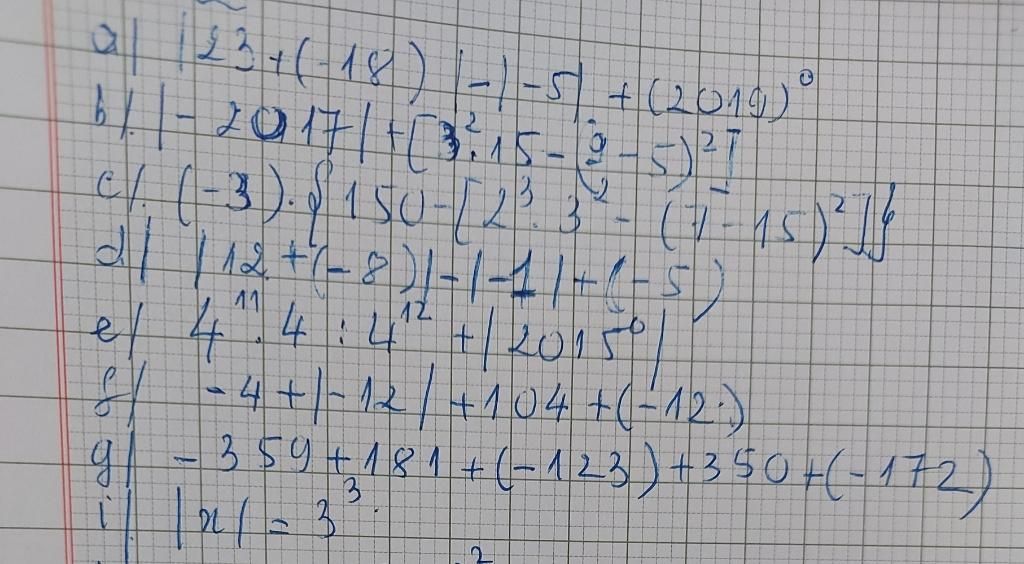 a/ |23 + (-18)| - |-5| + (2019)⁰
b/. |-2017| + [3².15 - (9 - 5)²]
c/. (-3).{150 - [2³.3² - (7 - 15)²]}
d/ |12 + (-8)| - |-1| + (-5)
e/ 4¹¹.4 : 4¹² + |2015⁰|
f/ -4 + |-12| + 104 + (-12)
g/ -359 + 181 + (-123) + 350 + (-172)
i/ |x| = 3³.
2